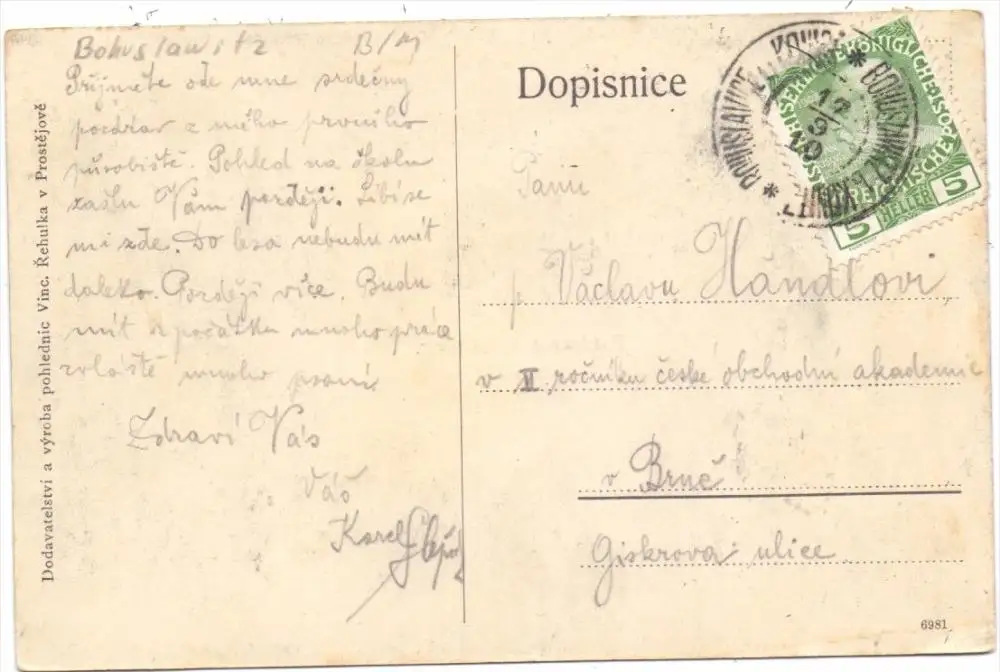 Bohuslawitz B/M
Přijměte ode mne srdečný
pozdrav z mého prvního
působiště. Pohled na školu
zašlu Vám později. Líbí se
mi zde. Do lesa nebudu mít
daleko. Později více. Budu
mít z počátku mnoho práce
zvláště mnoho psaní.
Zdraví Vás
Váš
Karel
Dodavatelství a výroba pohlednic Vinc. Řehulka v Prostějově
Dopisnice
Panu
p. Václavu Händlovi
v II ročníku české obchodní akademie
v Brně
Giskrova ulice
6981
BOHUSLAVICE
5 HELLER 5